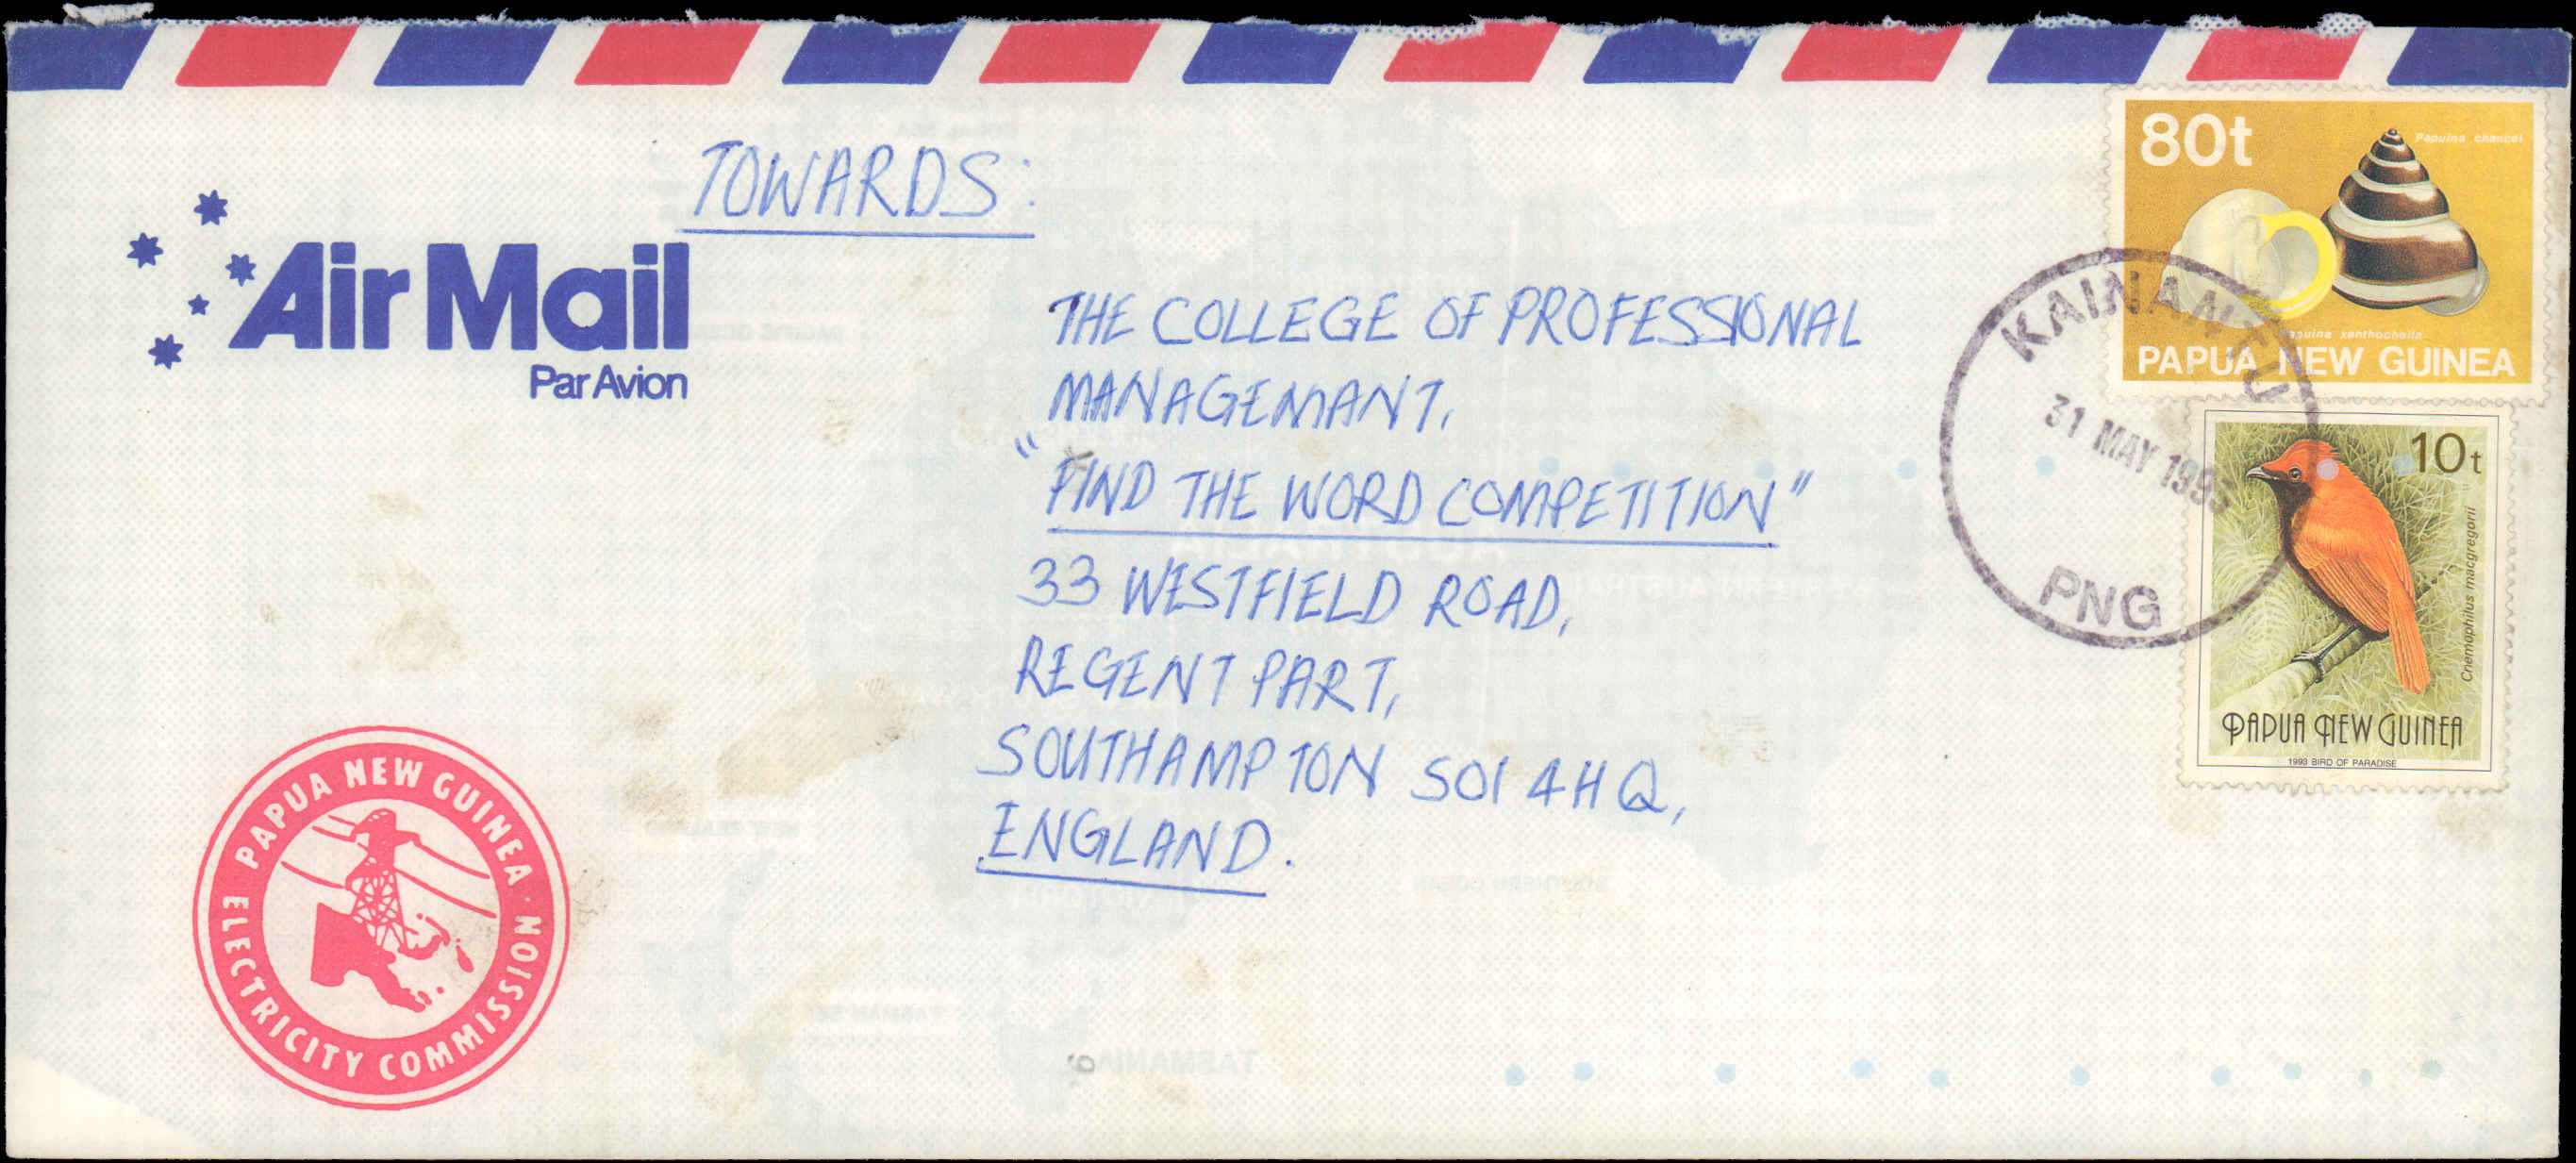 TOWARDS:
Air Mail
Par Avion
THE COLLEGE OF PROFESSIONAL
MANAGEMANT,
"FIND THE WORD COMPETITION"
33 WESTFIELD ROAD,
REGENT PART,
SOUTHAMPTON SO1 4HQ,
ENGLAND.
80t
Papuina chancei
Papuina xanthocheila
PAPUA NEW GUINEA
KAINANTU
31 MAY
PNG
10t
Cnemophilus macgregorii
PAPUA NEW GUINEA
1993 BIRD OF PARADISE
PAPUA NEW GUINEA · ELECTRICITY COMMISSION
TASMANIA